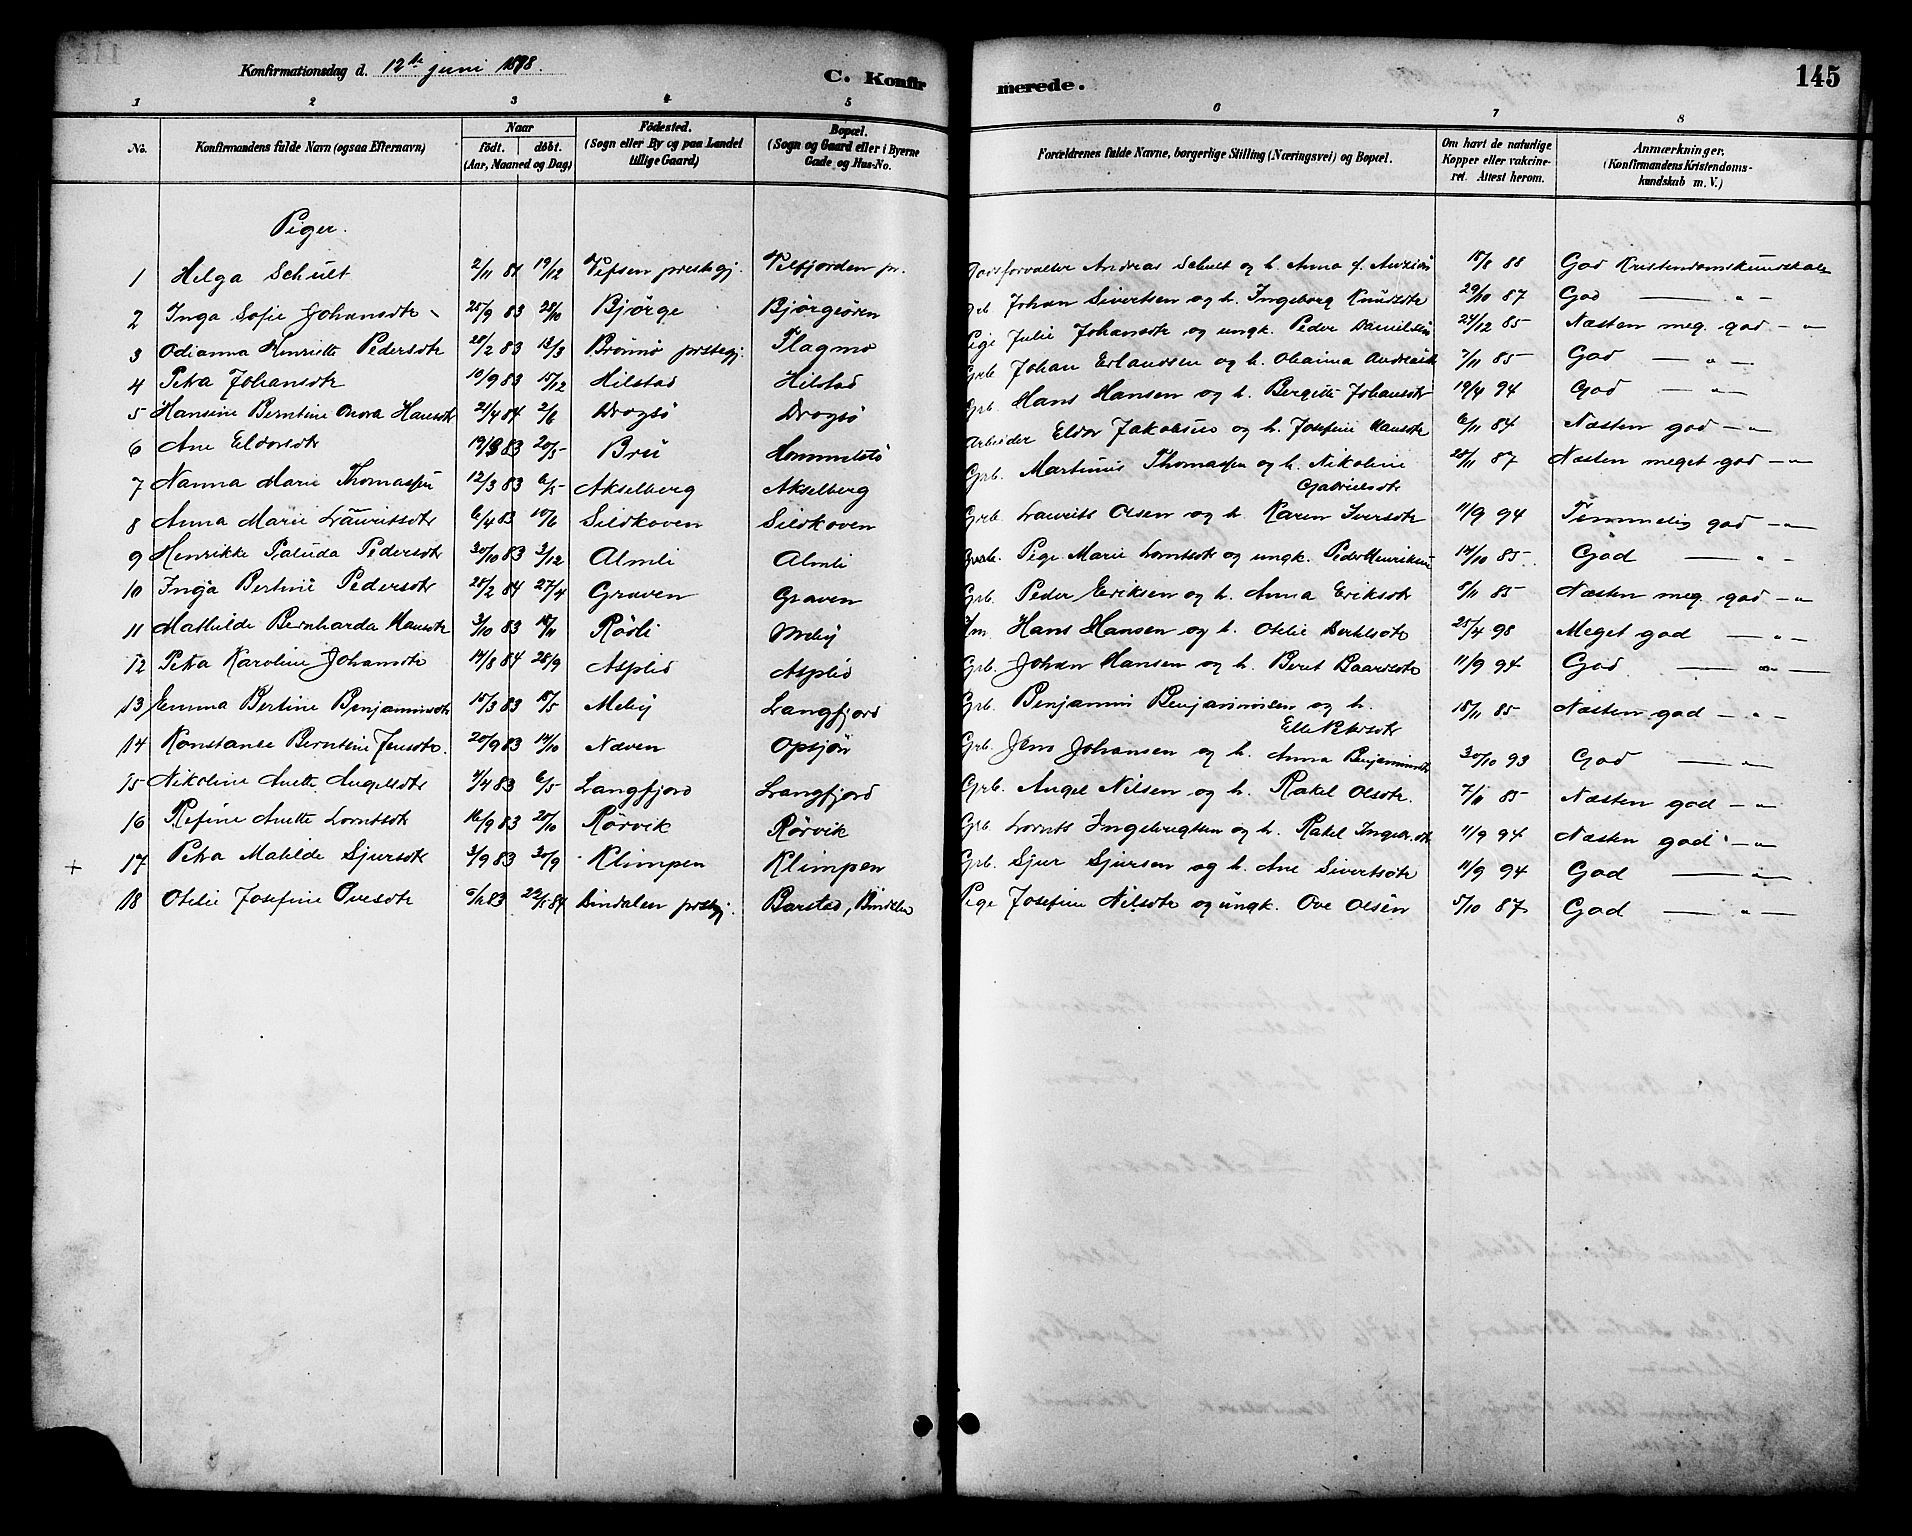 Konfirmationsdag d. 12te juni 1898.
C. Konfirmerede.
145
1 2 3 4 5 6 7 8
No. | Konfirmandens fulde Navn (ogsaa Efternavn) | Naar födt. döbt. (Aar, Maaned og Dag) | Födested. (Sogn eller By og paa Landet tillige Gaard) | Bopæl. (Sogn og Gaard eller i Byerne Gade og Hus-No. | Forældrenes fulde Navne, borgerlige Stilling (Næringsvei) og Bopæl. | Om havt de naturlige Kopper eller vakcineret. Attest herom. | Anmærkninger. (Konfirmandens Kristendomskundskab m. V.)
Piger.
1 Helga Schult 2/11 81 19/12 Vefsen prestegj. Velfjorden pr. Andreas Schult og h. Anna f. 18/8 88 God Kristendomskundskab
2 Inga Sofie Johansdtr 25/9 83 28/10 Bjørge Bjørgeøren Johan Sivertsen og h. Ingeborg Knudsdtr 29/10 87 God — „ —
3 Odianna Henriette Pedersdtr 28/2 83 13/3 Brønnø prstegj. Flagmo Pige Julie Johansdtr og ungk. Peder Danielsen 24/12 85 Næsten meg. god — „
4 Petra Johansdtr 10/9 83 15/12 Hilstad Hilstad Grb. Johan Erlandsen og h. 7/11 85 God — „ —
5 Hansine Berntine Hansdtr 21/4 84 2/6 Drogsø Drogsø Grb. Hans Hansen og h. Bergitte Johansdtr 19/4 94 God — „ —
6 Ane Eldorsdtr 19/3 83 20/5 Bru Hommelstø Arbeider Eldor Jakobsen og h. Josefine Hansdtr 6/11 84 Næsten god — „
7 Nanna Marie Thomassen 12/3 83 6/5 Akselberg Akselberg Grb. Martinus Thomassen og h. Nikoline Gabrielsdtr 28/11 87 Næsten meget god — „
8 Anna Marie Lauritsdtr 6/4 83 10/6 Sildkoven Sildkoven Grb. Laurits Olsen og h. Karen Iversdtr 11/9 94 Temmelig god — „
9 Henrikke Paluda Pedersdtr 30/10 83 3/12 Almli Almli Pige Marie Lorntsdtr og ungk. Peder Henriksen 14/10 85 God — „ —
10 Inga Bertine Pedersdtr 28/2 84 27/4 Graven Graven Grb. Peder Eriksen og h. Anna Eriksdtr 8/11 85 Næsten meg. god — „
11 Mathilde Bernharda Hansdtr 3/10 83 18/11 Rødli Meby Hm. Hans Hansen og h. Otelie Bertelsdtr 25/4 98 Meget god — „ —
12 Petra Karoline Johansdtr 14/8 84 28/9 Asplid Asplid Grb. Johan Hansen og h. Berit Baardsdtr 11/9 94 God — „ —
13 Emma Bertine Benjaminsdtr 15/3 83 15/5 Meby Langfjord Grb. Benjamin Benjaminsen og h. Elle Petersdtr 18/11 85 Næsten god — „ —
14 Konstanse Berntine Jensdtr. 20/9 83 14/10 Næven Opsjøn Grb. Jens Johansen og h. Anna Benjaminsdtr 30/10 93 God — „
15 Nikoline Anette Angelsdtr 4/4 83 6/5 Langfjord Langfjord Grb. Angel Nilsen og h. Rakel Olsdtr. 7/11 85 Næsten god — „
16 Refine Anette Lorntsdtr 16/9 83 20/10 Rørvik Rørvik Grb. Lornts Ingebrigtsen og h. Rakel Ingebr.dtr 11/9 94 Næsten god — „
+ 17 Petra Matilde Sjursdtr 3/9 83 30/9 Klimpen Klimpen Grb. Sjur Sjursen og h. Ane Sivertsdtr 11/9 94 God — „
18 Otelie Josefine Ovesdtr 83 22/1 84 Bindalen prstegj. Barstad, Bindalen Pige Josefine Nilsdtr og ungk. Ove Olsen 5/10 87 God — „ —